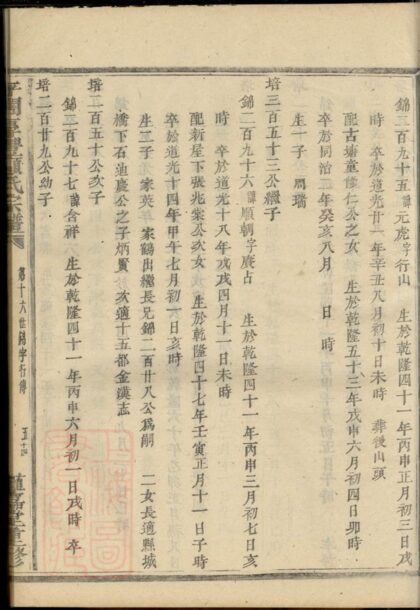 錦二百九十五諱元虎字行山　生於乾隆四十一年丙申三月初三日戌
時　卒於道光廿一年辛丑八月初十日未時　葬後山頭
配古塘童俊仁公之女　生於乾隆五十三年戊申六月初四日卯時
卒於同治二年癸亥八月　日　時
生一子　周瑞
培三百五十三公繼子
錦二百九十六諱順朝字廣占　生於乾隆四十一年丙申三月初七日亥
時　卒於道光十八年戊戌四月十一日未時
配新屋下張兆棠公次女　生於乾隆四十七年壬寅正月十一日子時
卒於道光十四年甲午七月初一日亥時
生二子　家英　家鶴出繼長兄錦二百廿八公爲嗣　二女長適縣城
橋下石迪慶公之子炳賢　次適十五都金漢志
培二百五十公次子
錦二百九十七諱含祥　生於乾隆四十一年丙申六月初一日戌時　卒
培二百廿九公幼子
氏宗譜
第十六世錦字行傳
重修